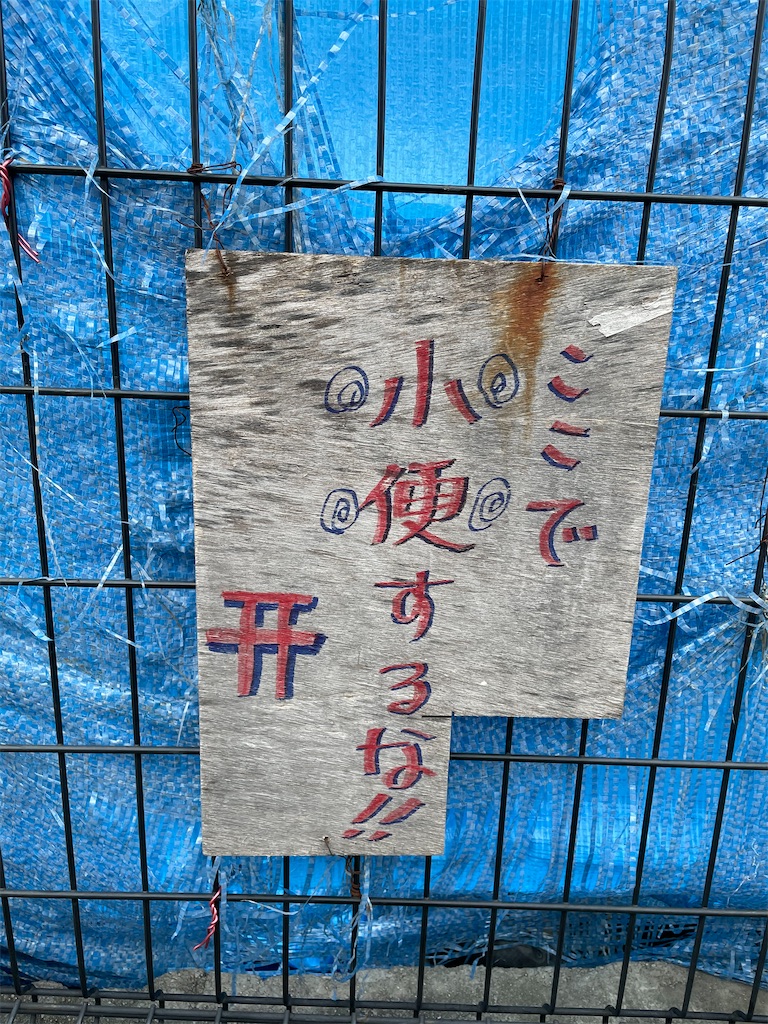 ここで
小便するな!!